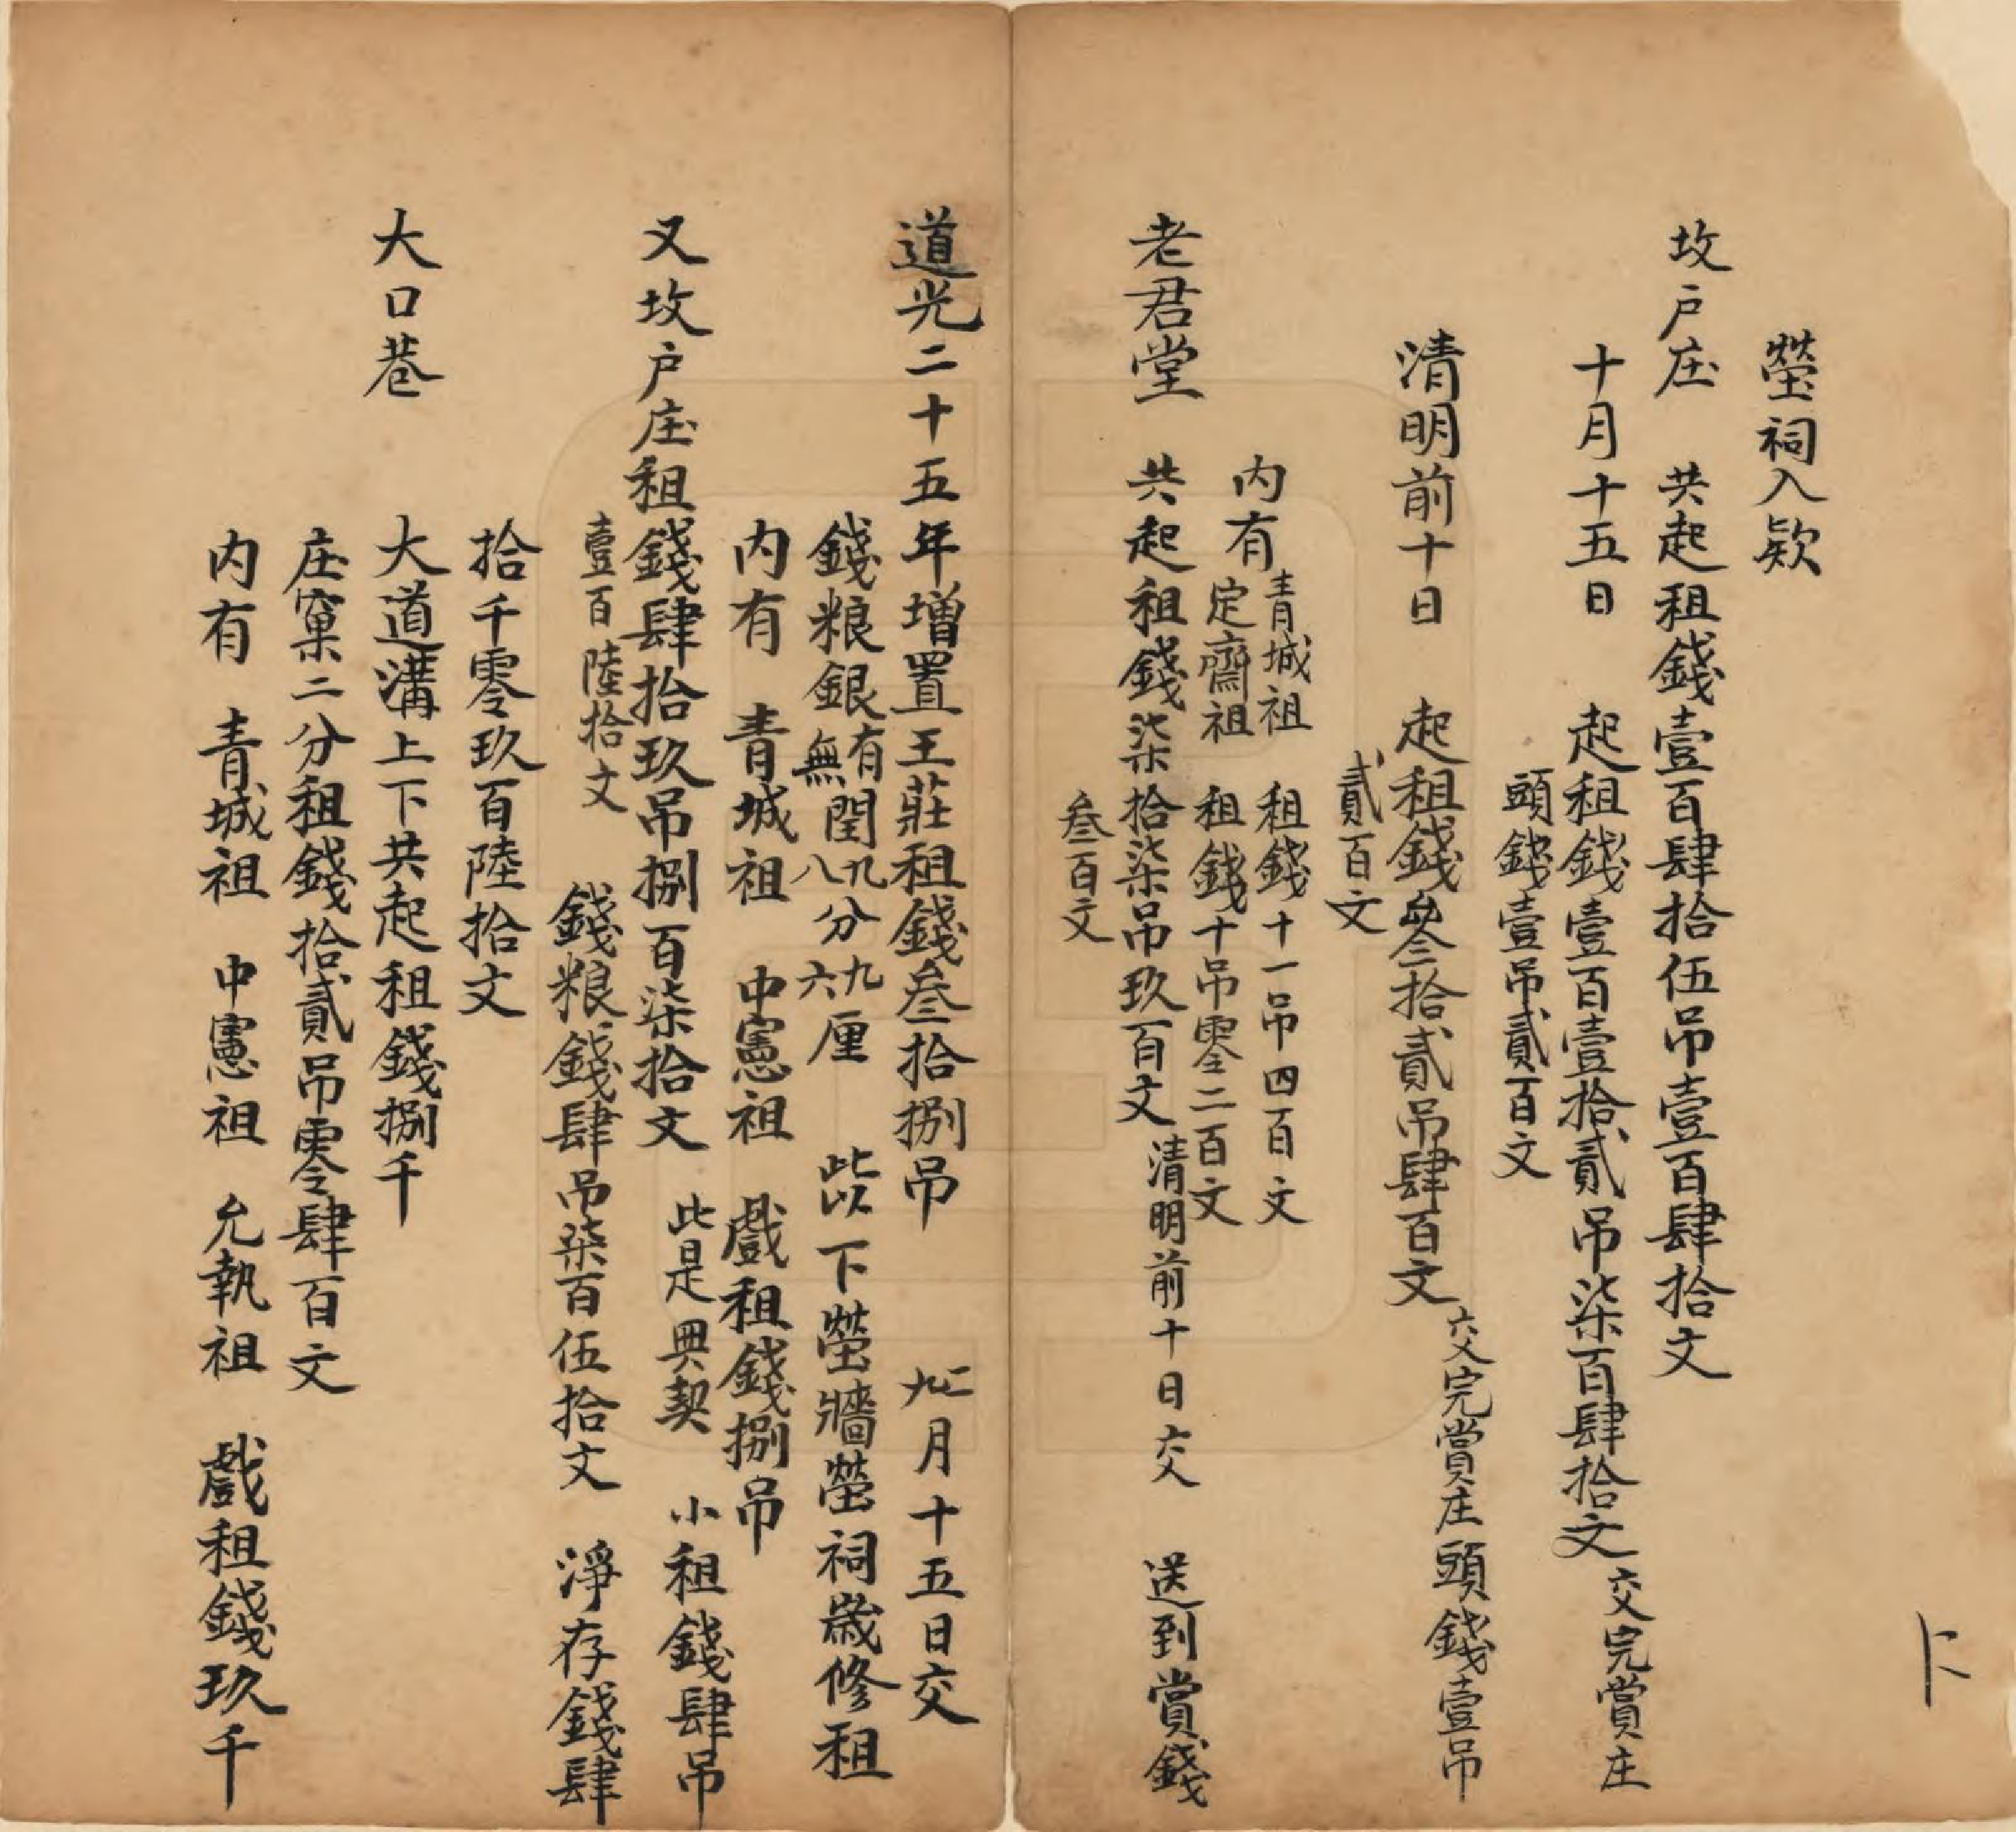 塋祠入欵
坟户庄　共起租錢壹百肆拾伍吊壹百肆拾文
十月十五日　起租錢壹百壹拾貳吊柒百肆拾文　交完賞庄
頭錢壹吊貳百文
清明前十日　起租錢叄拾貳吊肆百文　交完賞庄頭錢壹吊
貳百文
内有　青城祖　租錢十一吊四百文
定齋祖　租錢十吊零二百文
老君堂　共起租錢柒拾柒吊玖百文　清明前十日交　送到賞錢
叁百文
道光二十五年增置王莊租錢叁拾捌吊　月十五日交
錢粮銀有閏九分九厘
無　八　六　此以下塋牆塋祠歲修租
内有　青城祖　中憲祖　戲租錢捌吊
又坟户庄租錢肆拾玖吊捌百柒拾文　此是典契　小租錢肆吊
壹百陸拾文　錢粮錢肆吊柒百伍拾文　淨存錢肆
拾千零玖百陸拾文
大口巷　大道溝上下共起租錢捌千
庄窠二分租錢拾貳吊零肆百文
内有　青城祖　中憲祖　允執祖　戲租錢玖千